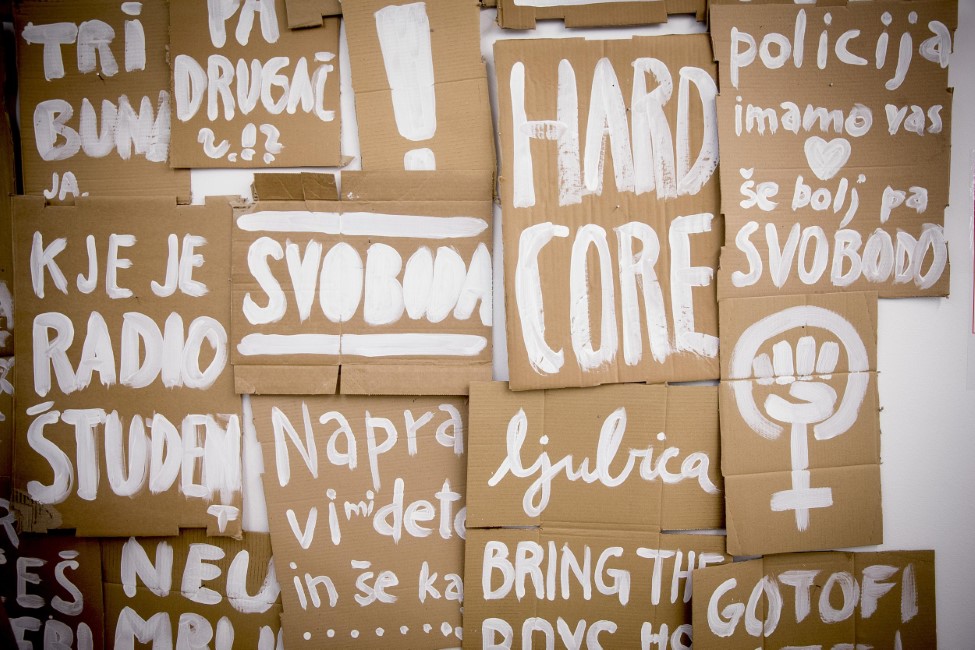 TRI
BUNA
JA.
PA
DRUGAČ
?!?
!
HARD
CORE
policija
imamo vas
še bolj pa
SVOBODO
KJE JE
RADIO
ŠTUDENT
SVOBODA
Napra
vi mi deto
in še ka
........
ljubica
BRING THE
BOYS HO
GOTOFI
EŠ
NEU
MBLJ